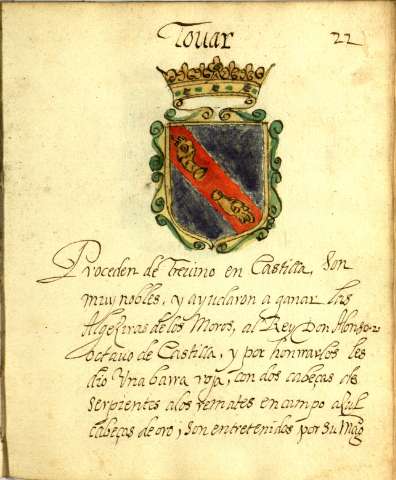 Touar 22
Proceden de Treuino en Castilla, son
muy nobles, y ayudaron a ganar las
Algeziras de los Moros, al Rey Don Alonso
octauo de Castilla, y por honrrarlos les
dio Vna barra roja, con dos cabeças de
serpientes a los remates en campo azul
cabeças de oro, son entretenidos por su Mag